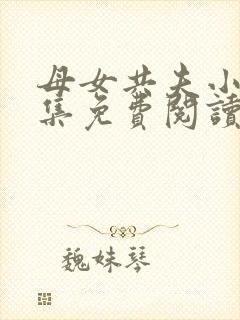 母女共夫小
集免費閱讀
魏妹琴